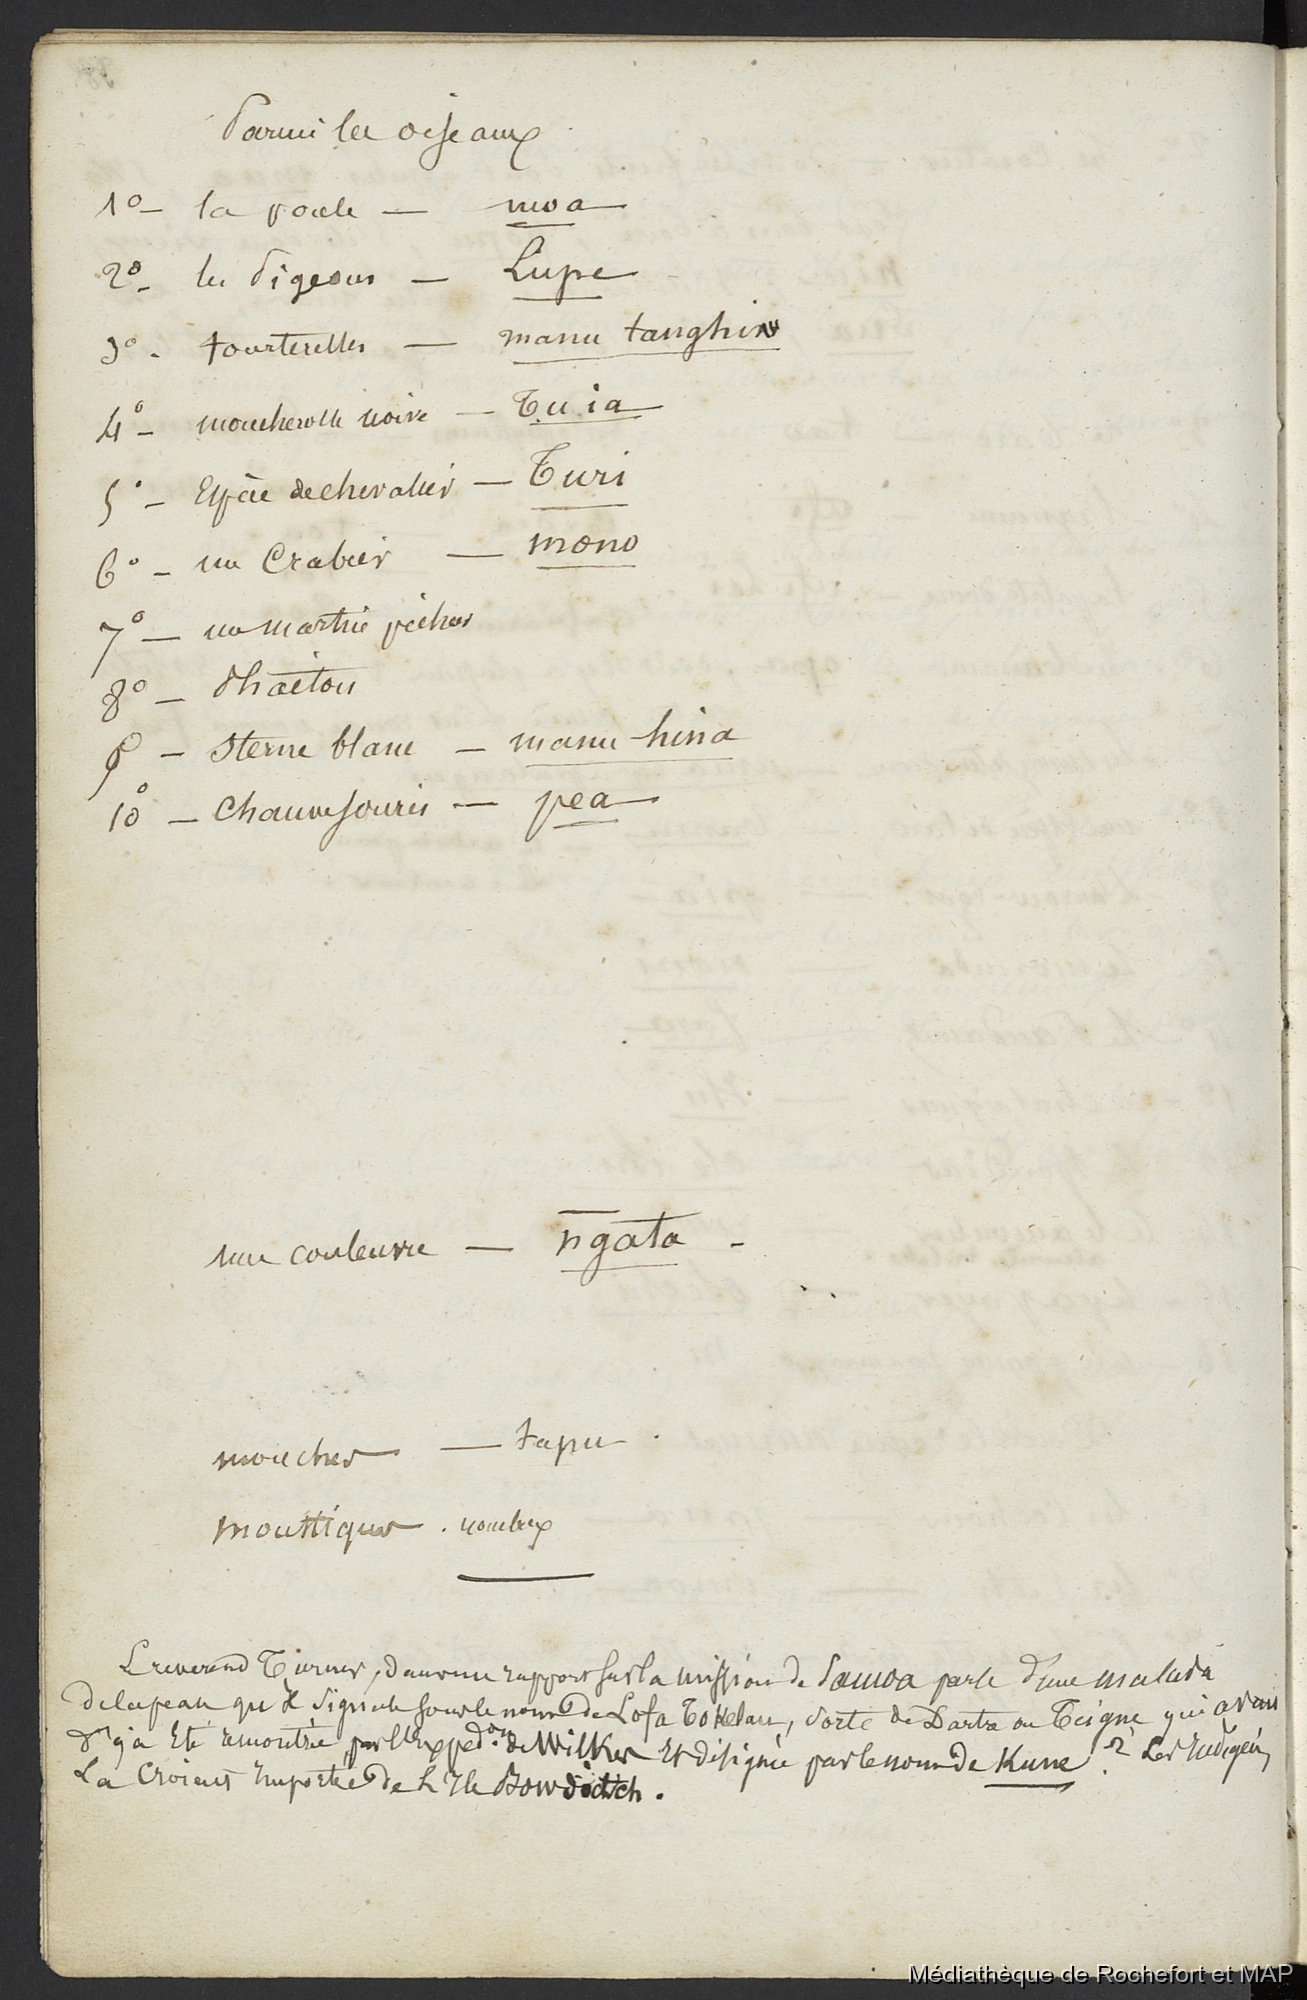 Parmi les oiseaux
1° - la poule - moa
2° - les Pigeons - Lupe
3° - tourterelles - manu tanghi
4° - moucherolle noire - Tu ia
5° - Espèce de chevalier - Turi
6° - un Crabier - mono
7° - un martin pêcheur
8° - Phaéton
9° - Sterne blanc - manu-hina
10° - Chauve souris - pea
une couleuvre - n̄gata -
mouches - tapu
moustiques . nombreux
Le reverend Turner, dans un rapport sur la mission de Samoa parle d'une maladie
de la peau qu'il signale sous le nom de Lofa Tokelau, sorte de Dartre ou Teigne qui avait
déjà été remontrée par l'Expedon de Wilkes et désignée par le nom de Kune ? Les Indigènes
La croient importée de L'Ile Bowditch.